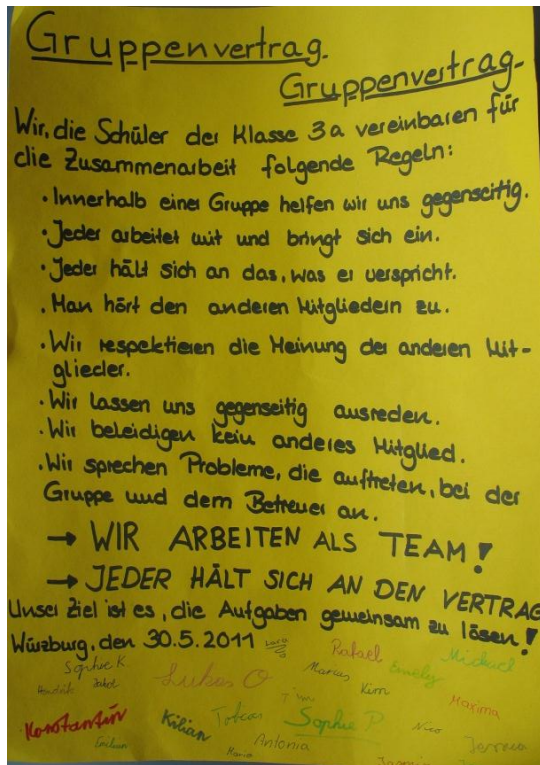 Gruppenvertrag.
Gruppenvertrag.
Wir, die Schüler der Klasse 3a vereinbaren für
die Zusammenarbeit folgende Regeln:
· Innerhalb einer Gruppe helfen wir uns gegenseitig.
· Jeder arbeitet mit und bringt sich ein.
· Jeder hält sich an das, was er verspricht.
· Man hört den anderen Mitgliedern zu.
· Wir respektieren die Meinung der anderen Mit-
glieder.
· Wir lassen uns gegenseitig ausreden.
· Wir beleidigen kein anderes Mitglied.
· Wir sprechen Probleme, die auftreten, bei der
Gruppe und dem Betreuer an.
→ WIR ARBEITEN ALS TEAM!
→ JEDER HÄLT SICH AN DEN VERTRAG
Unser Ziel ist es, die Aufgaben gemeinsam zu lösen!
Würzburg, den 30.5.2011 Lara
Rafael Michael
Sophie K Marius Emely
Hendrik Jakob Lukas O Kim
Timo Maxima
Konstantin Kilian Tobias Sophie P Nico
Antonia
Maria